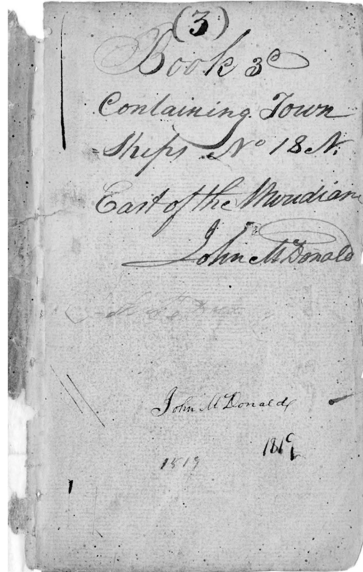 (3)
Book 3d
Containing Town
Ships No 18 N.
East of the Meridian
John McDonald
John McDonald
1819
1819